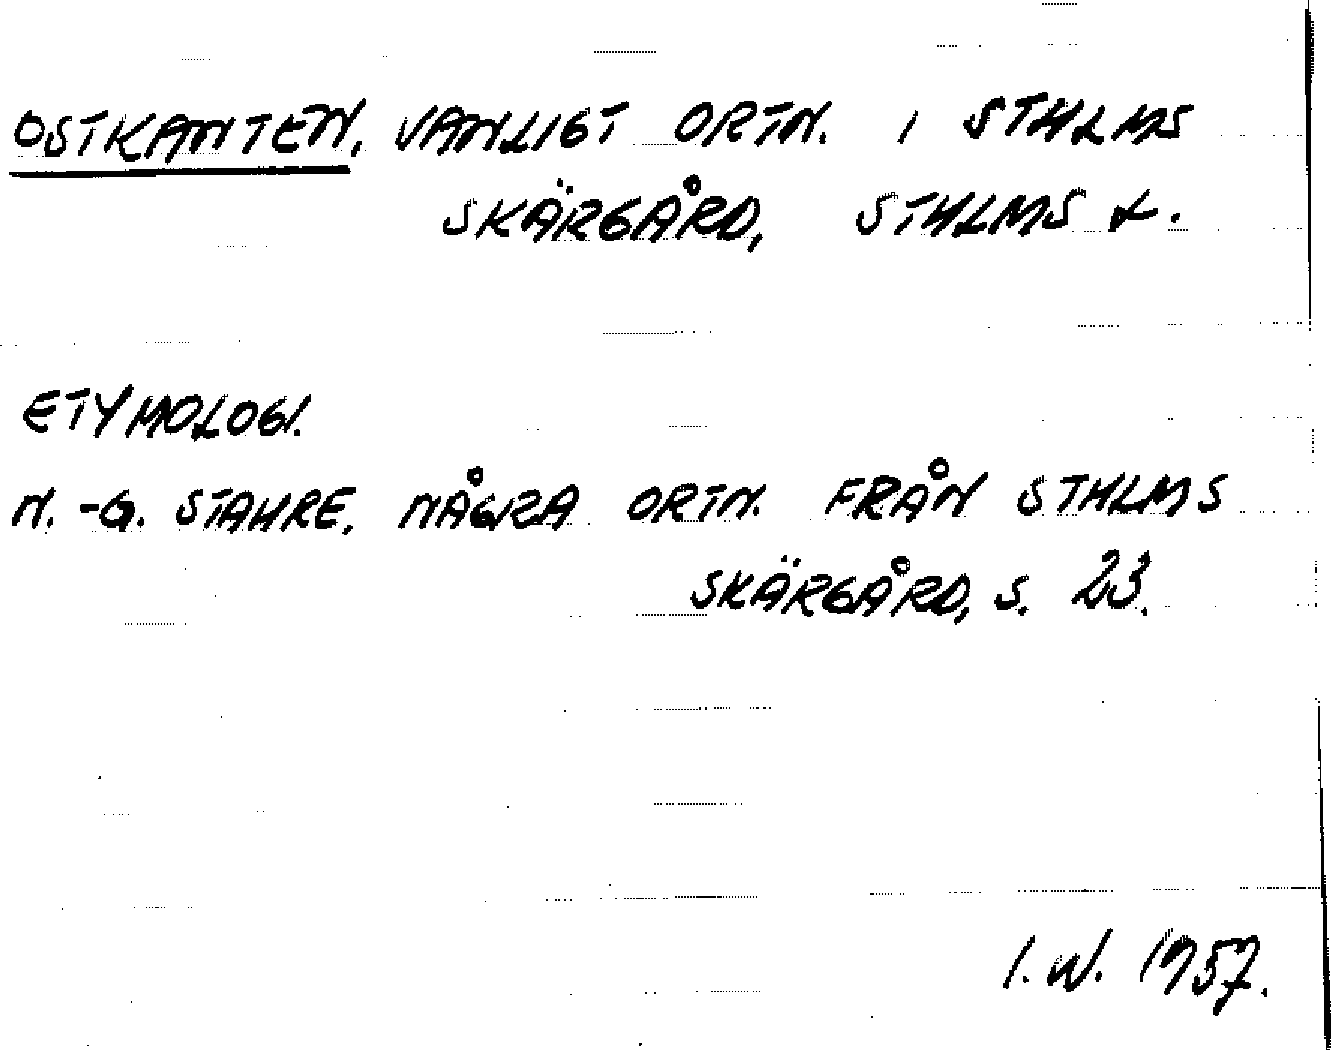 OSTKANTEN, VANLIGT ORTN. I STHLMS
SKÄRGÅRD, STHLMS L.
ETYMOLOGI.
N.-G. STAHRE, NÅGRA ORTN. FRÅN STHLMS
SKÄRGÅRD, S. 23.
I.W. 1957.